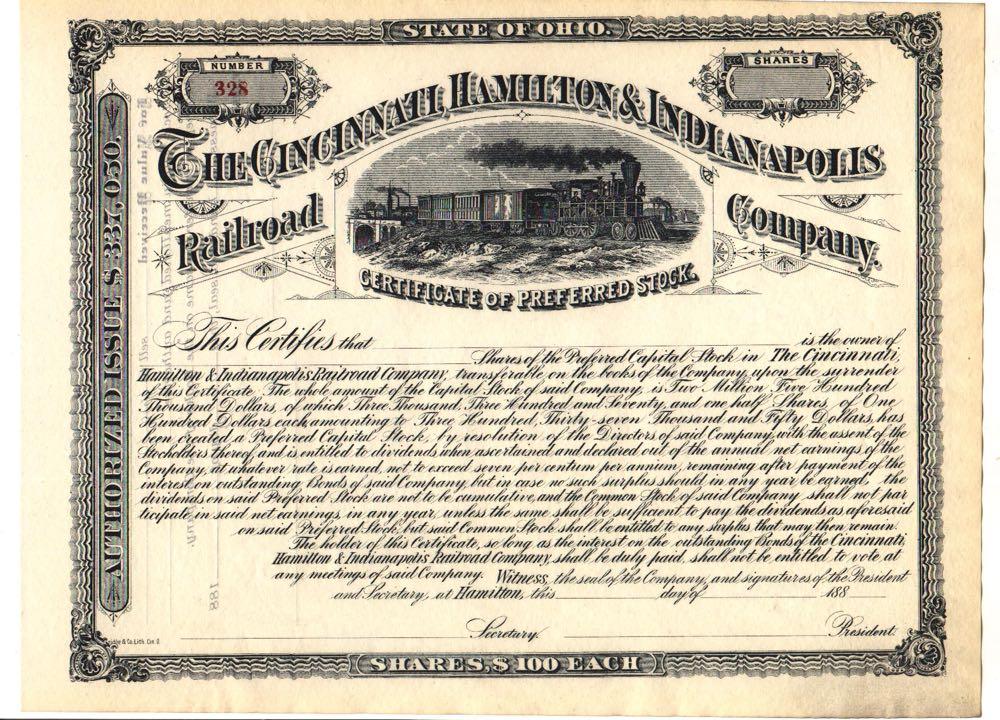 STATE OF OHIO.
NUMBER
328
SHARES
THE CINCINNATI, HAMILTON & INDIANAPOLIS
Railroad Company.
CERTIFICATE OF PREFERRED STOCK.
AUTHORIZED ISSUE $337,050.
This Certifies that is the owner of
Shares of the Preferred Capital Stock in The Cincinnati,
Hamilton & Indianapolis Railroad Company, transferable on the books of the Company upon the surrender
of this Certificate. The whole amount of the Capital Stock of said Company, is Two Million Five Hundred
Thousand Dollars, of which Three Thousand, Three Hundred and Seventy, and one half Shares, of One
Hundred Dollars each, amounting to Three Hundred, Thirty-seven Thousand and Fifty Dollars, has
been created a Preferred Capital Stock, by resolution of the Directors of said Company, with the assent of the
Stockholders thereof, and is entitled to dividends when ascertained and declared out of the annual net earnings of the
Company, at whatever rate is earned, not to exceed seven per centum per annum, remaining after payment of the
interest on outstanding Bonds of said Company, but in case no such surplus should in any year be earned, the
dividends on said Preferred Stock are not to be cumulative, and the Common Stock of said Company shall not par
ticipate, in said net earnings, in any year, unless the same shall be sufficient to pay the dividends as aforesaid
on said Preferred Stock, but said Common Stock shall be entitled to any surplus that may then remain.
The holder of this Certificate, so long as the interest on the outstanding Bonds of the Cincinnati
Hamilton & Indianapolis Railroad Company, shall be duly paid, shall not be entitled to vote at
any meetings of said Company. Witness, the seal of the Company, and signatures of the President
and Secretary, at Hamilton, this day of 188
Secretary. President.
& Co. Lith. Cin. O.
SHARES, $100 EACH
For Value Received
sell
188